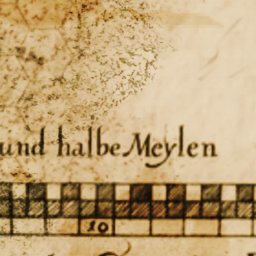 und halbe Meylen
10